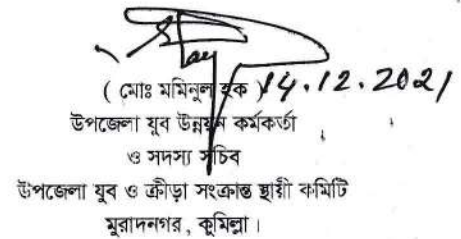 ( মোঃ মমিনুল হক ) 14.12.2021
উপজেলা যুব উন্নয়ন কর্মকর্তা
ও সদস্য সচিব
উপজেলা যুব ও ক্রীড়া সংক্রান্ত স্থায়ী কমিটি
মুরাদনগর, কুমিল্লা।